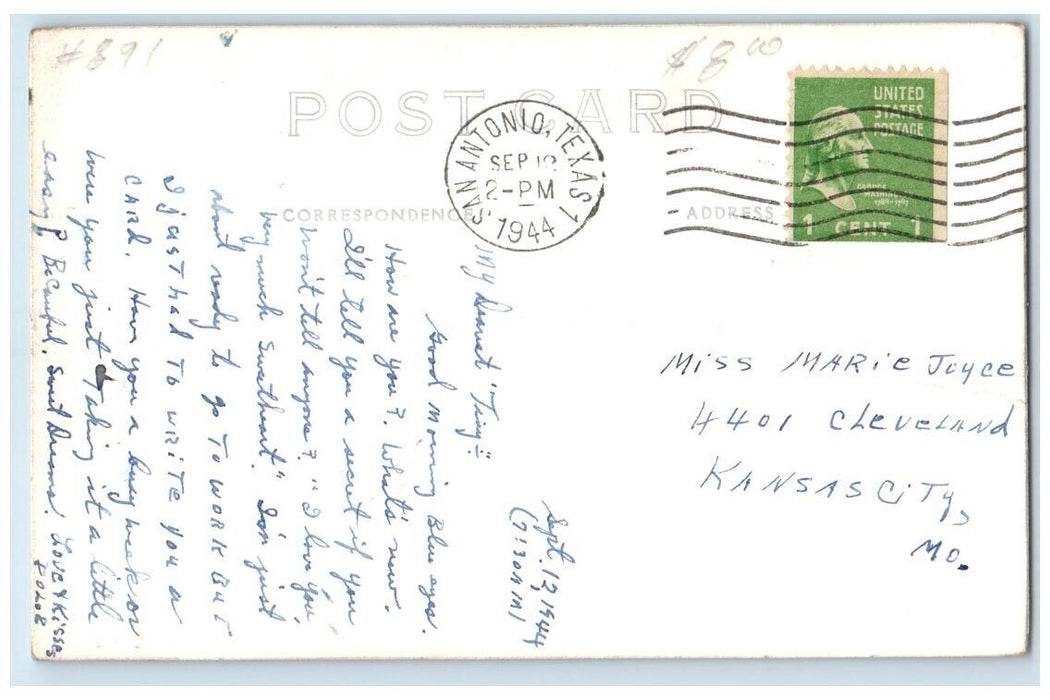 #891
$8.00
POST CARD
SAN ANTONIO, TEXAS 1
SEP 12
2-PM
1944
UNITED
STATES
POSTAGE
GEORGE
WASHINGTON
1789-1797
1 CENT 1
CORRESPONDENCE
ADDRESS
Sept. 12, 1944
(7:30 AM)
My Dearest "Tiny":
Good Morning Blue eyes.
How are you? What's new.
I'll tell you a secret if you
won't tell anyone? "I love you,
very much Sweetheart." I'm just
about ready to go To WORK BUT
I just HAD To WRITE you a
CARD. Have you a busy week or
were you just Taking it a little
easy? Be careful. Sweet Dreams. Love & Kisses
Miss MARIE JOYCE
4401 CLEVELAND
KANSAS CITY,
MO.